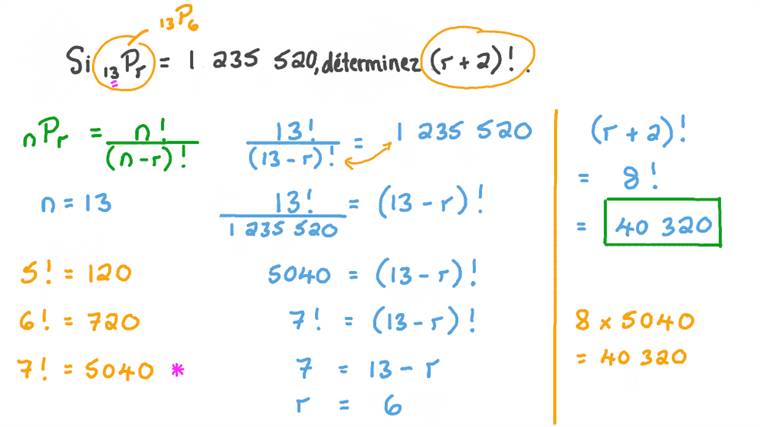 ₁₃P₆
Si ₁₃Pᵣ = 1 235 520, déterminez (r + 2)!.
ₙPᵣ = n! / (n-r)!
n = 13
5! = 120
6! = 720
7! = 5040 *
13! / (13-r)! = 1 235 520
13! / 1 235 520 = (13-r)!
5040 = (13-r)!
7! = (13-r)!
7 = 13-r
r = 6
(r+2)!
= 8!
= 40 320
8 × 5040
= 40 320